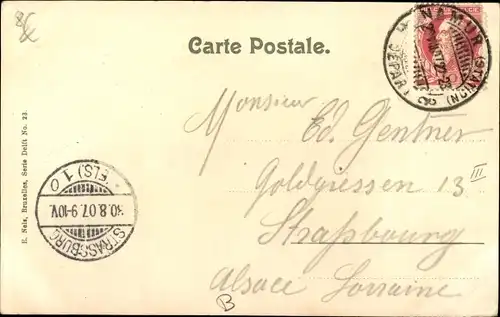 Carte Postale.
NAMUR (STATION)
DEPART
Monsieur
Ed. Gentner
Goldgiessen 13 III
Strassbourg
Alsace Lorraine
STRASSBURG
30.8.07.9-10V.
(ELS) 1 o
E. Nels, Bruxelles, Serie Delft No. 23.
B